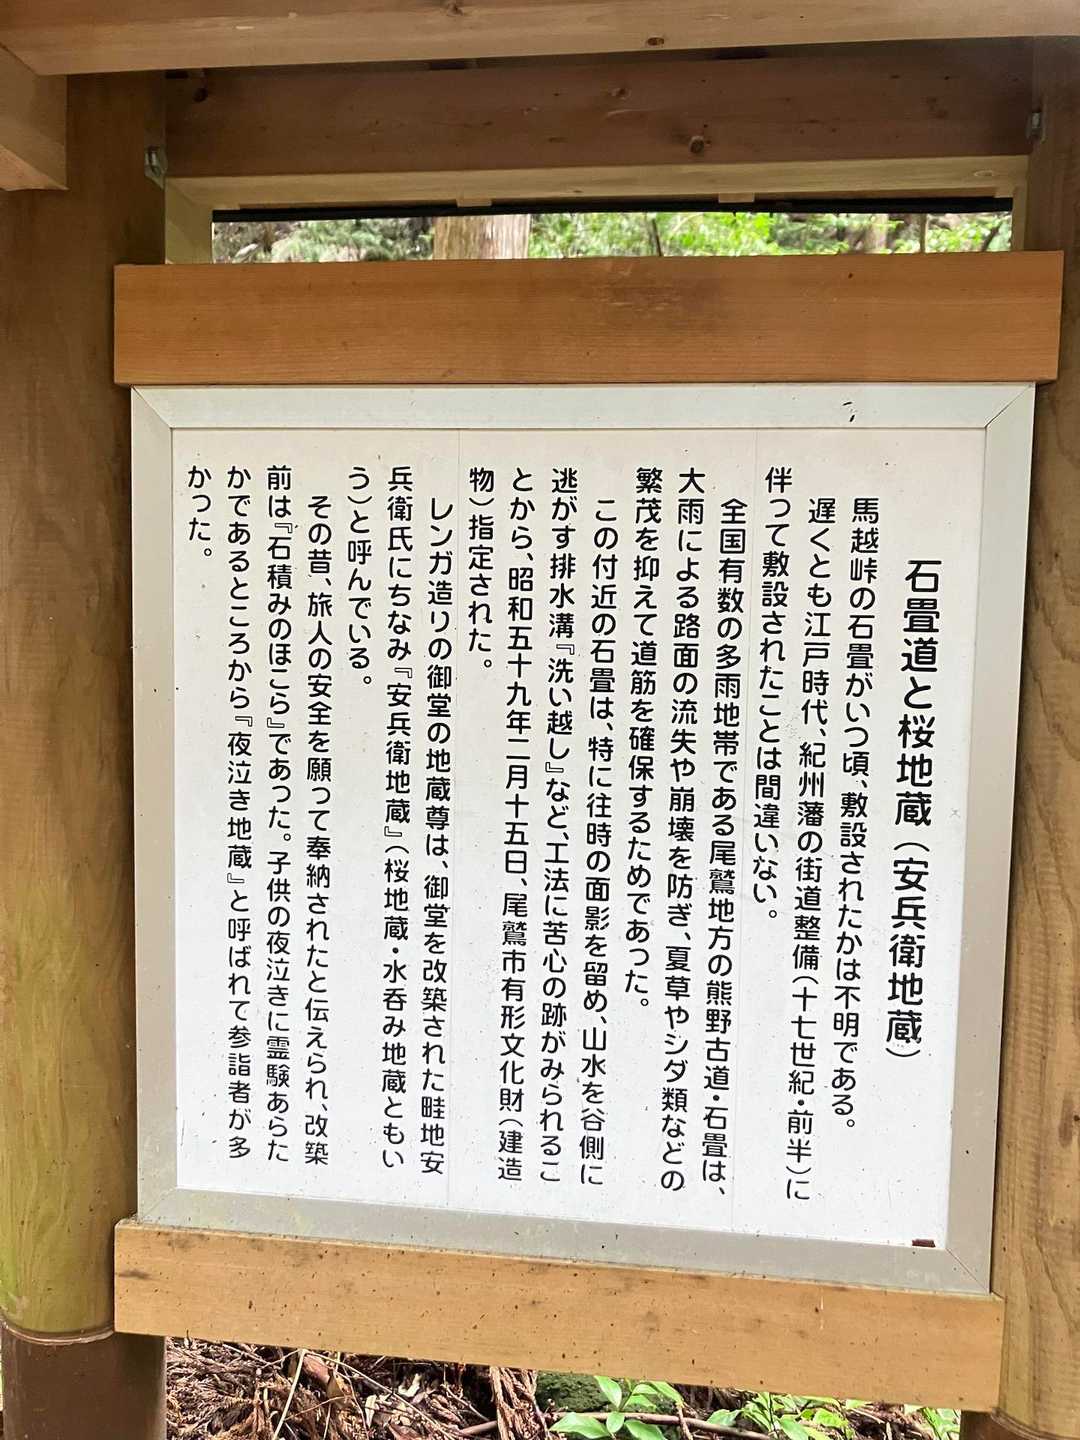 石畳道と桜地蔵（安兵衛地蔵）
馬越峠の石畳がいつ頃、敷設されたかは不明である。
遅くとも江戸時代、紀州藩の街道整備（十七世紀・前半）に
伴って敷設されたことは間違いない。
全国有数の多雨地帯である尾鷲地方の熊野古道・石畳は、
大雨による路面の流失や崩壊を防ぎ、夏草やシダ類などの
繁茂を抑えて道筋を確保するためであった。
この付近の石畳は、特に往時の面影を留め、山水を谷側に
逃がす排水溝『洗い越し』など、工法に苦心の跡がみられるこ
とから、昭和五十九年二月十五日、尾鷲市有形文化財（建造
物）指定された。
レンガ造りの御堂の地蔵尊は、御堂を改築された畦地安
兵衛氏にちなみ『安兵衛地蔵』（桜地蔵・水呑み地蔵ともい
う）と呼んでいる。
その昔、旅人の安全を願って奉納されたと伝えられ、改築
前は『石積みのほこら』であった。子供の夜泣きに霊験あらた
かであるところから『夜泣き地蔵』と呼ばれて参詣者が多
かった。